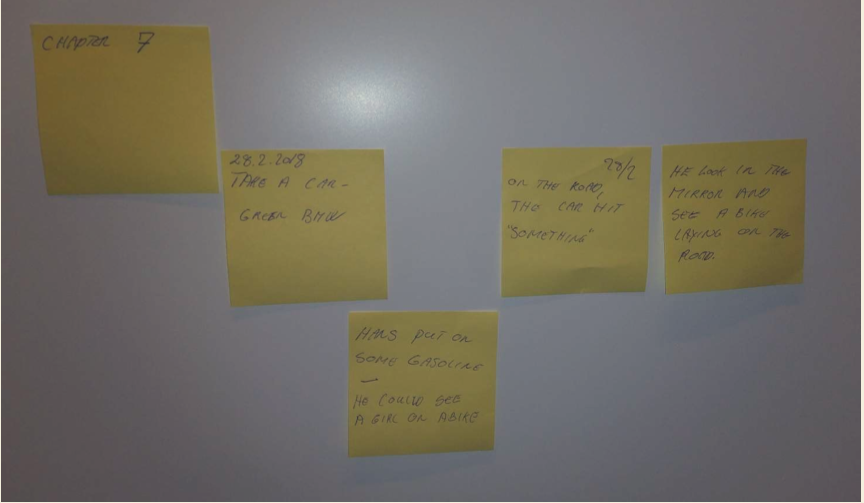 CHAPTER 7
28.2.2018
TAKE A CAR -
GREEN BMW
HANS PUT ON
SOME GASOLINE
—
HE COULD SEE
A GIRL ON A BIKE
28/2
ON THE ROAD,
THE CAR HIT
"SOMETHING"
HE LOOK IN THE
MIRROR AND
SEE A BIKE
LAYING ON THE
ROAD.